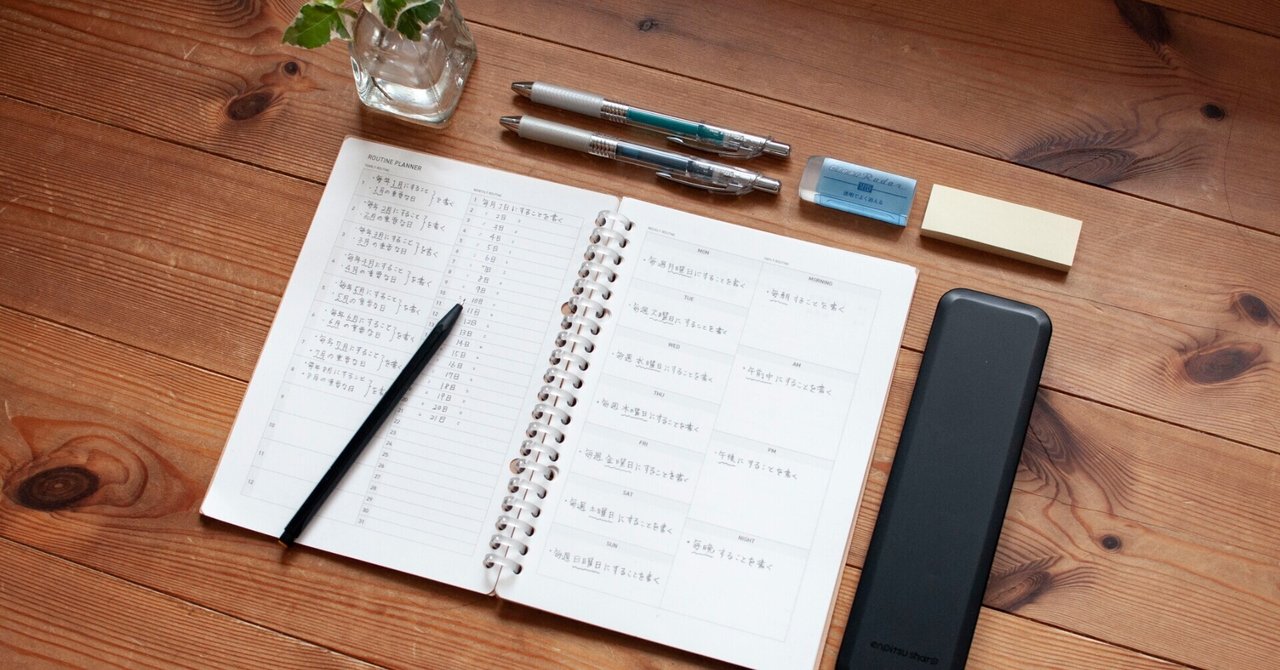 ROUTINE PLANNER
YEARLY ROUTINE
1 ・毎年1月にすること
・1月の重要な日 }を書く
2 ・毎年2月にすること
・2月の重要な日 }を書く
3 ・毎年3月にすること
・3月の重要な日 }を書く
4 ・毎年4月にすること
・4月の重要な日 }を書く
5 ・毎年5月にすること
・5月の重要な日 }を書く
6 ・毎年6月にすること
・6月の重要な日 }を書く
7 ・毎年7月にすること
・7月の重要な日 }を書く
8 ・毎年8月にすること
・8月の重要な日 }を書く
9
10
11
12
MONTHLY ROUTINE
1 毎月1日にすることを書く
2 〃 2日 〃
3日 〃
4日 〃
5日 〃
6日 〃
7日 〃
8日 〃
9日 〃
10 10日 〃
11 11日 〃
12日 〃
13日 〃
14日 〃
15日 〃
16日 〃
17日 〃
18日 〃
19日 〃
20日 〃
21日 〃
22
23
24
25
26
27
28
29
30
31
WEEKLY ROUTINE
MON
・毎週月曜日にすることを書く
TUE
・毎週火曜日にすることを書く
WED
・毎週水曜日にすることを書く
THU
・毎週木曜日にすることを書く
FRI
・毎週金曜日にすることを書く
SAT
・毎週土曜日にすることを書く
SUN
・毎週日曜日にすることを書く
DAILY ROUTINE
MORNING
・毎朝することを書く
AM
・午前中にすることを書く
PM
・午後にすることを書く
NIGHT
・毎晩することを書く
Radar
透明でよく消える
enpitsu sharp